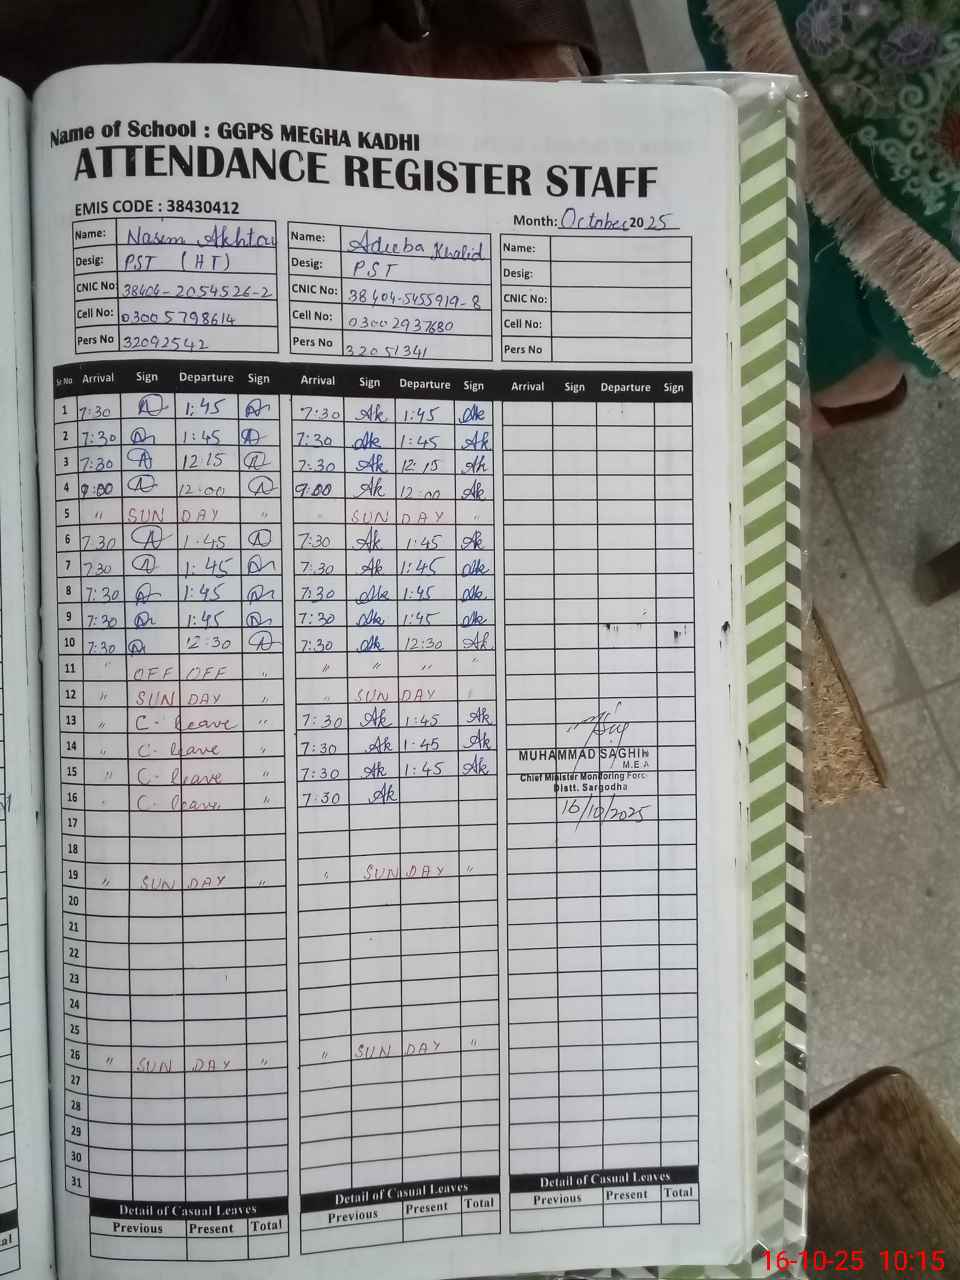 Name of School : GGPS MEGHA KADHI
ATTENDANCE REGISTER STAFF
EMIS CODE : 38430412
Month: October 2025
Name: Nasim Akhtar Name: Adeeba Khalid Name:
Desig: PST (HT) Desig: PST Desig:
CNIC No: 38404-2054526-2 CNIC No: 38404-5455919-8 CNIC No:
Cell No: 03005798614 Cell No: 03002937680 Cell No:
Pers No 32092542 Pers No 32051341 Pers No
Sr No Arrival Sign Departure Sign Arrival Sign Departure Sign Arrival Sign Departure Sign
1 7:30 A 1:45 A 7:30 Ak 1:45 Ak
2 7:30 A 1:45 A 7:30 Ak 1:45 Ak
3 7:30 A 12:15 A 7:30 Ak 12:15 Ak
4 9:00 A 12:00 A 9:00 Ak 12:00 Ak
5 " SUN DAY " " SUN DAY "
6 7:30 A 1:45 A 7:30 Ak 1:45 Ak
7 7:30 A 1:45 A 7:30 Ak 1:45 Ak
8 7:30 A 1:45 A 7:30 Ak 1:45 Ak
9 7:30 A 1:45 A 7:30 Ak 1:45 Ak
10 7:30 A 12:30 A 7:30 Ak 12:30 Ak
11 " OFF OFF " " " " "
12 " SUN DAY " " SUN DAY "
13 " C-leave " 7:30 Ak 1:45 Ak
14 " C-leave " 7:30 Ak 1:45 Ak
MUHAMMAD SAGHIR
M.E.A
15 " C-leave " 7:30 Ak 1:45 Ak
Chief Minister Monitoring Force
Distt. Sargodha
16 " C-leave " 7:30 Ak
16/10/2025
17
18
19 " SUN DAY " " SUN DAY "
20
21
22
23
24
25
26 " SUN DAY " " SUN DAY "
27
28
29
30
31
Detail of Casual Leaves Detail of Casual Leaves Detail of Casual Leaves
Previous Present Total Previous Present Total Previous Present Total
16-10-25 10:15